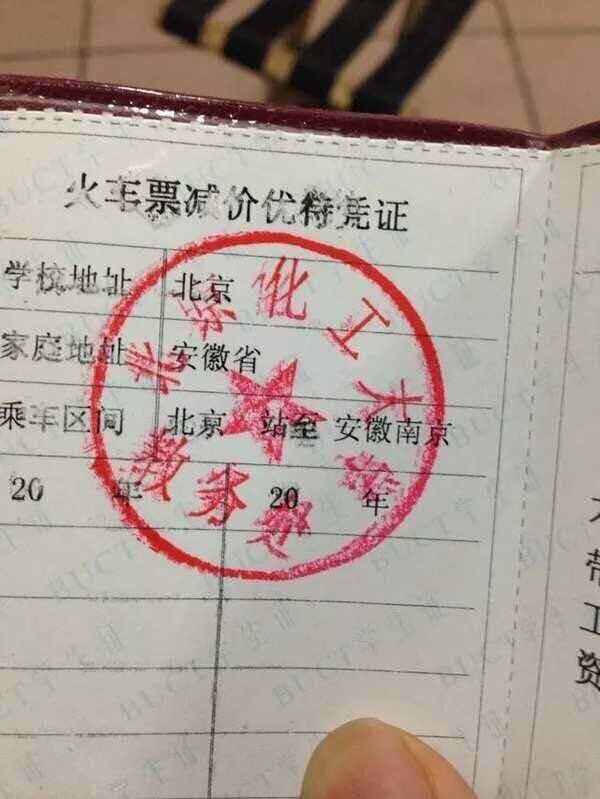 火车票减价优待凭证
学校地址 北京
家庭地址 安徽省
乘车区间 北京 站至 安徽南京
20 年 20 年
北京化工大学
教务处
BUCT学生证
带
工
资